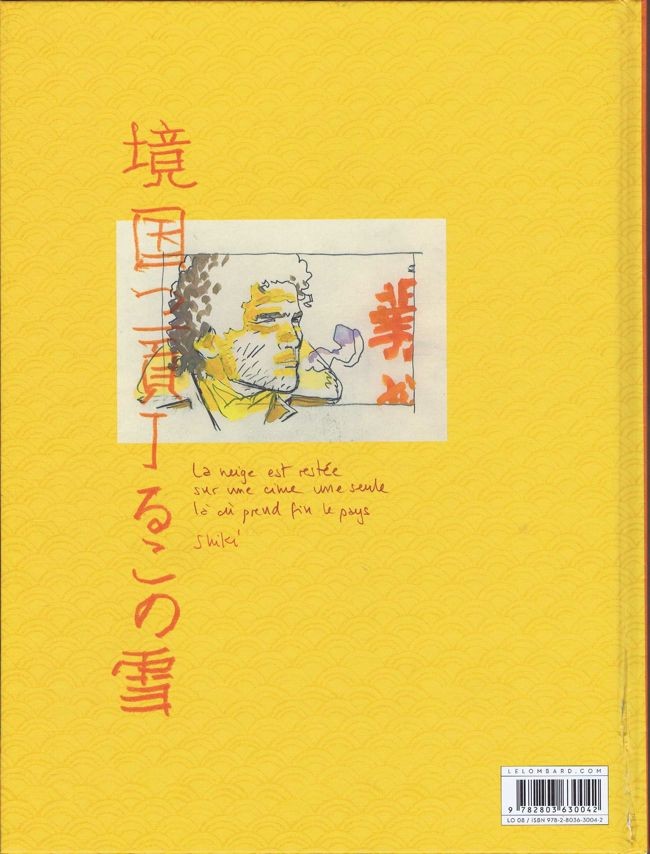 境国るこの雪
La neige est restée
sur une cime une seule
là où prend fin le pays
Shiki
LELOMBARD.COM
9 782803 630042
LO 08 / ISBN 978-2-8036-3004-2